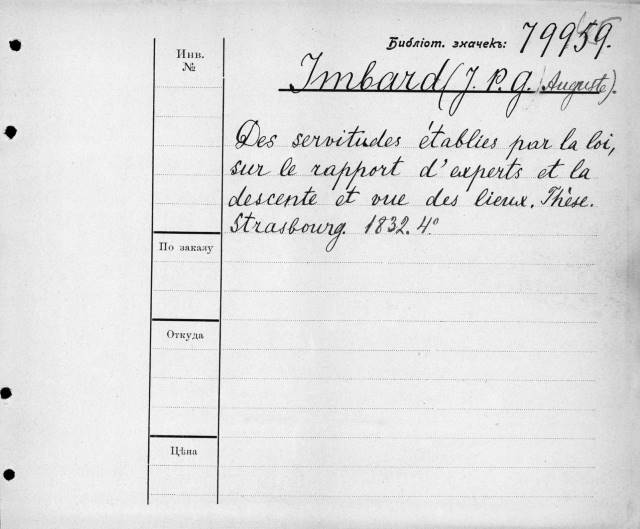 Библіот. значекъ: 79959.
Инв.
№
Imbard (J. P. G. Auguste).
Des servitudes établies par la loi,
sur le rapport d'experts et la
descente et vue des lieux. Thèse.
Strasbourg. 1832. 4º
По заказу
Откуда
Цѣна